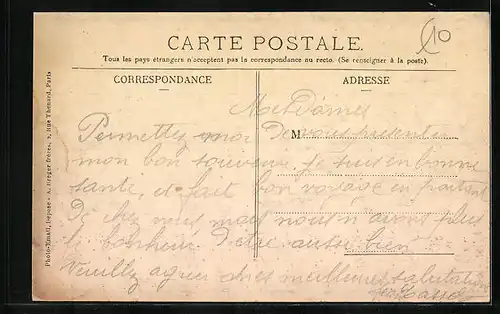 10
CARTE POSTALE.
Tous les pays étrangers n'acceptent pas la correspondance au recto. (Se renseigner à la poste).
CORRESPONDANCE
ADRESSE
MesDames
M
Permettez moi De vous présenter
mon bon souvenir, je suis en bonne
santé, et fait bon voyage en partant
De chez vous mais nous n'avons plus
le bonheur D'être aussi bien
Veuillez agréer mes meilleures salutations
Photo-Émail, Déposé - A. Breger frères, 9, Rue Thénard, Paris